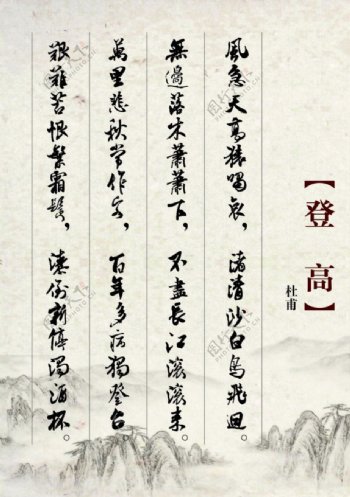 【登高】
杜甫
風急天高猿嘯哀，渚清沙白鳥飛迴。
無邊落木蕭蕭下，不盡長江滾滾来。
萬里悲秋常作客，百年多病獨登台。
艱難苦恨繁霜鬢，潦倒新停濁酒杯。